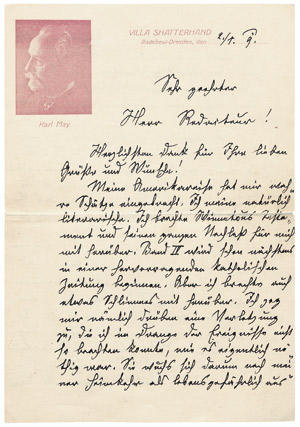 VILLA SHATTERHAND
Radebeul-Dresden, den 2/1. 9.
Karl May
Sehr geehrter
Herr Redacteur!
Herzlichsten Dank für Ihre lieben
Grüße und Wünsche!
Meine Amerikareise hat mir wah-
re Schätze eingebracht. Ich meine natürlich
literarische. Ich brachte Winnetous Testa-
ment und seinen ganzen Nachlaß für mich
mit herüber. Band IV wird schon nächstens
in einer hervorragenden katholischen
Zeitung beginnen. Aber ich brachte auch
etwas Schlimmes mit herüber. Ich zog
mir nämlich drüben eine Verletzung
zu, die ich im Drange der Ereignisse nicht
so beachten konnte, wie es eigentlich nö-
thig war. Sie wuchs sich darum nach mei-
ner Heimkehr als lebensgefährlich aus